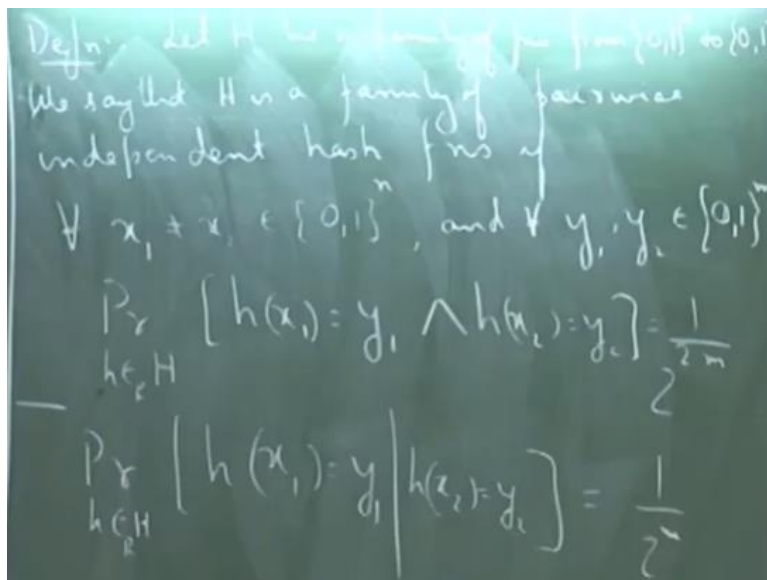 Defn: Let H be a family of fns from {0,1}ⁿ to {0,1
We say that H is a family of pairwise
independent hash fns if
∀ x₁ ≠ x₂ ∈ {0,1}ⁿ, and ∀ y₁, y₂ ∈ {0,1}ᵐ
Pr [h(x₁) = y₁ ∧ h(x₂) = y₂] = 1/2²ᵐ
h∈_R H
Pr [h(x₁) = y₁ | h(x₂) = y₂] = 1/2ᵐ
h∈_R H